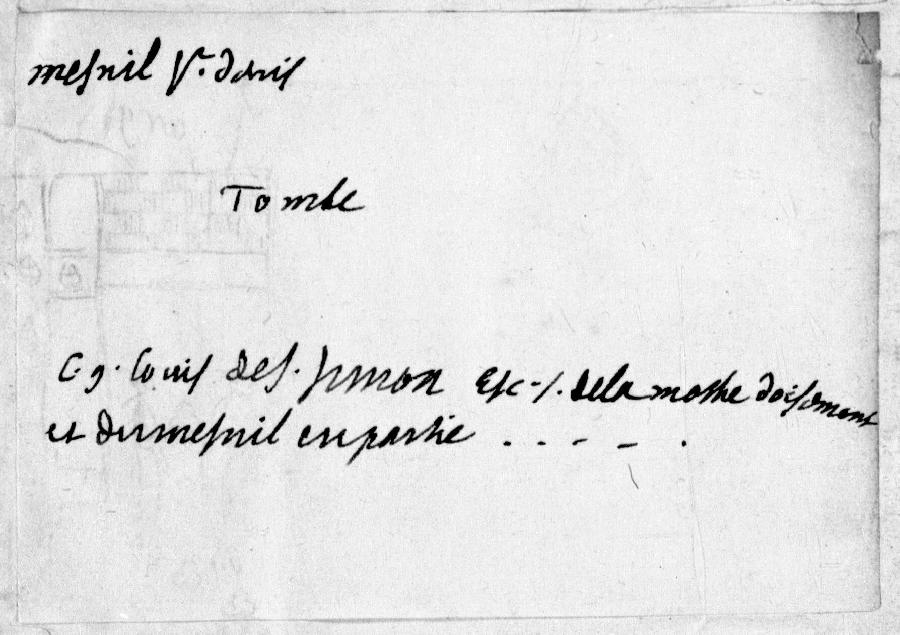 mesnil Sr. denis
Tombe
C. g. Louis de S. Simon Esc. Sr. de la mothe
et du mesnil en partie . . - - .